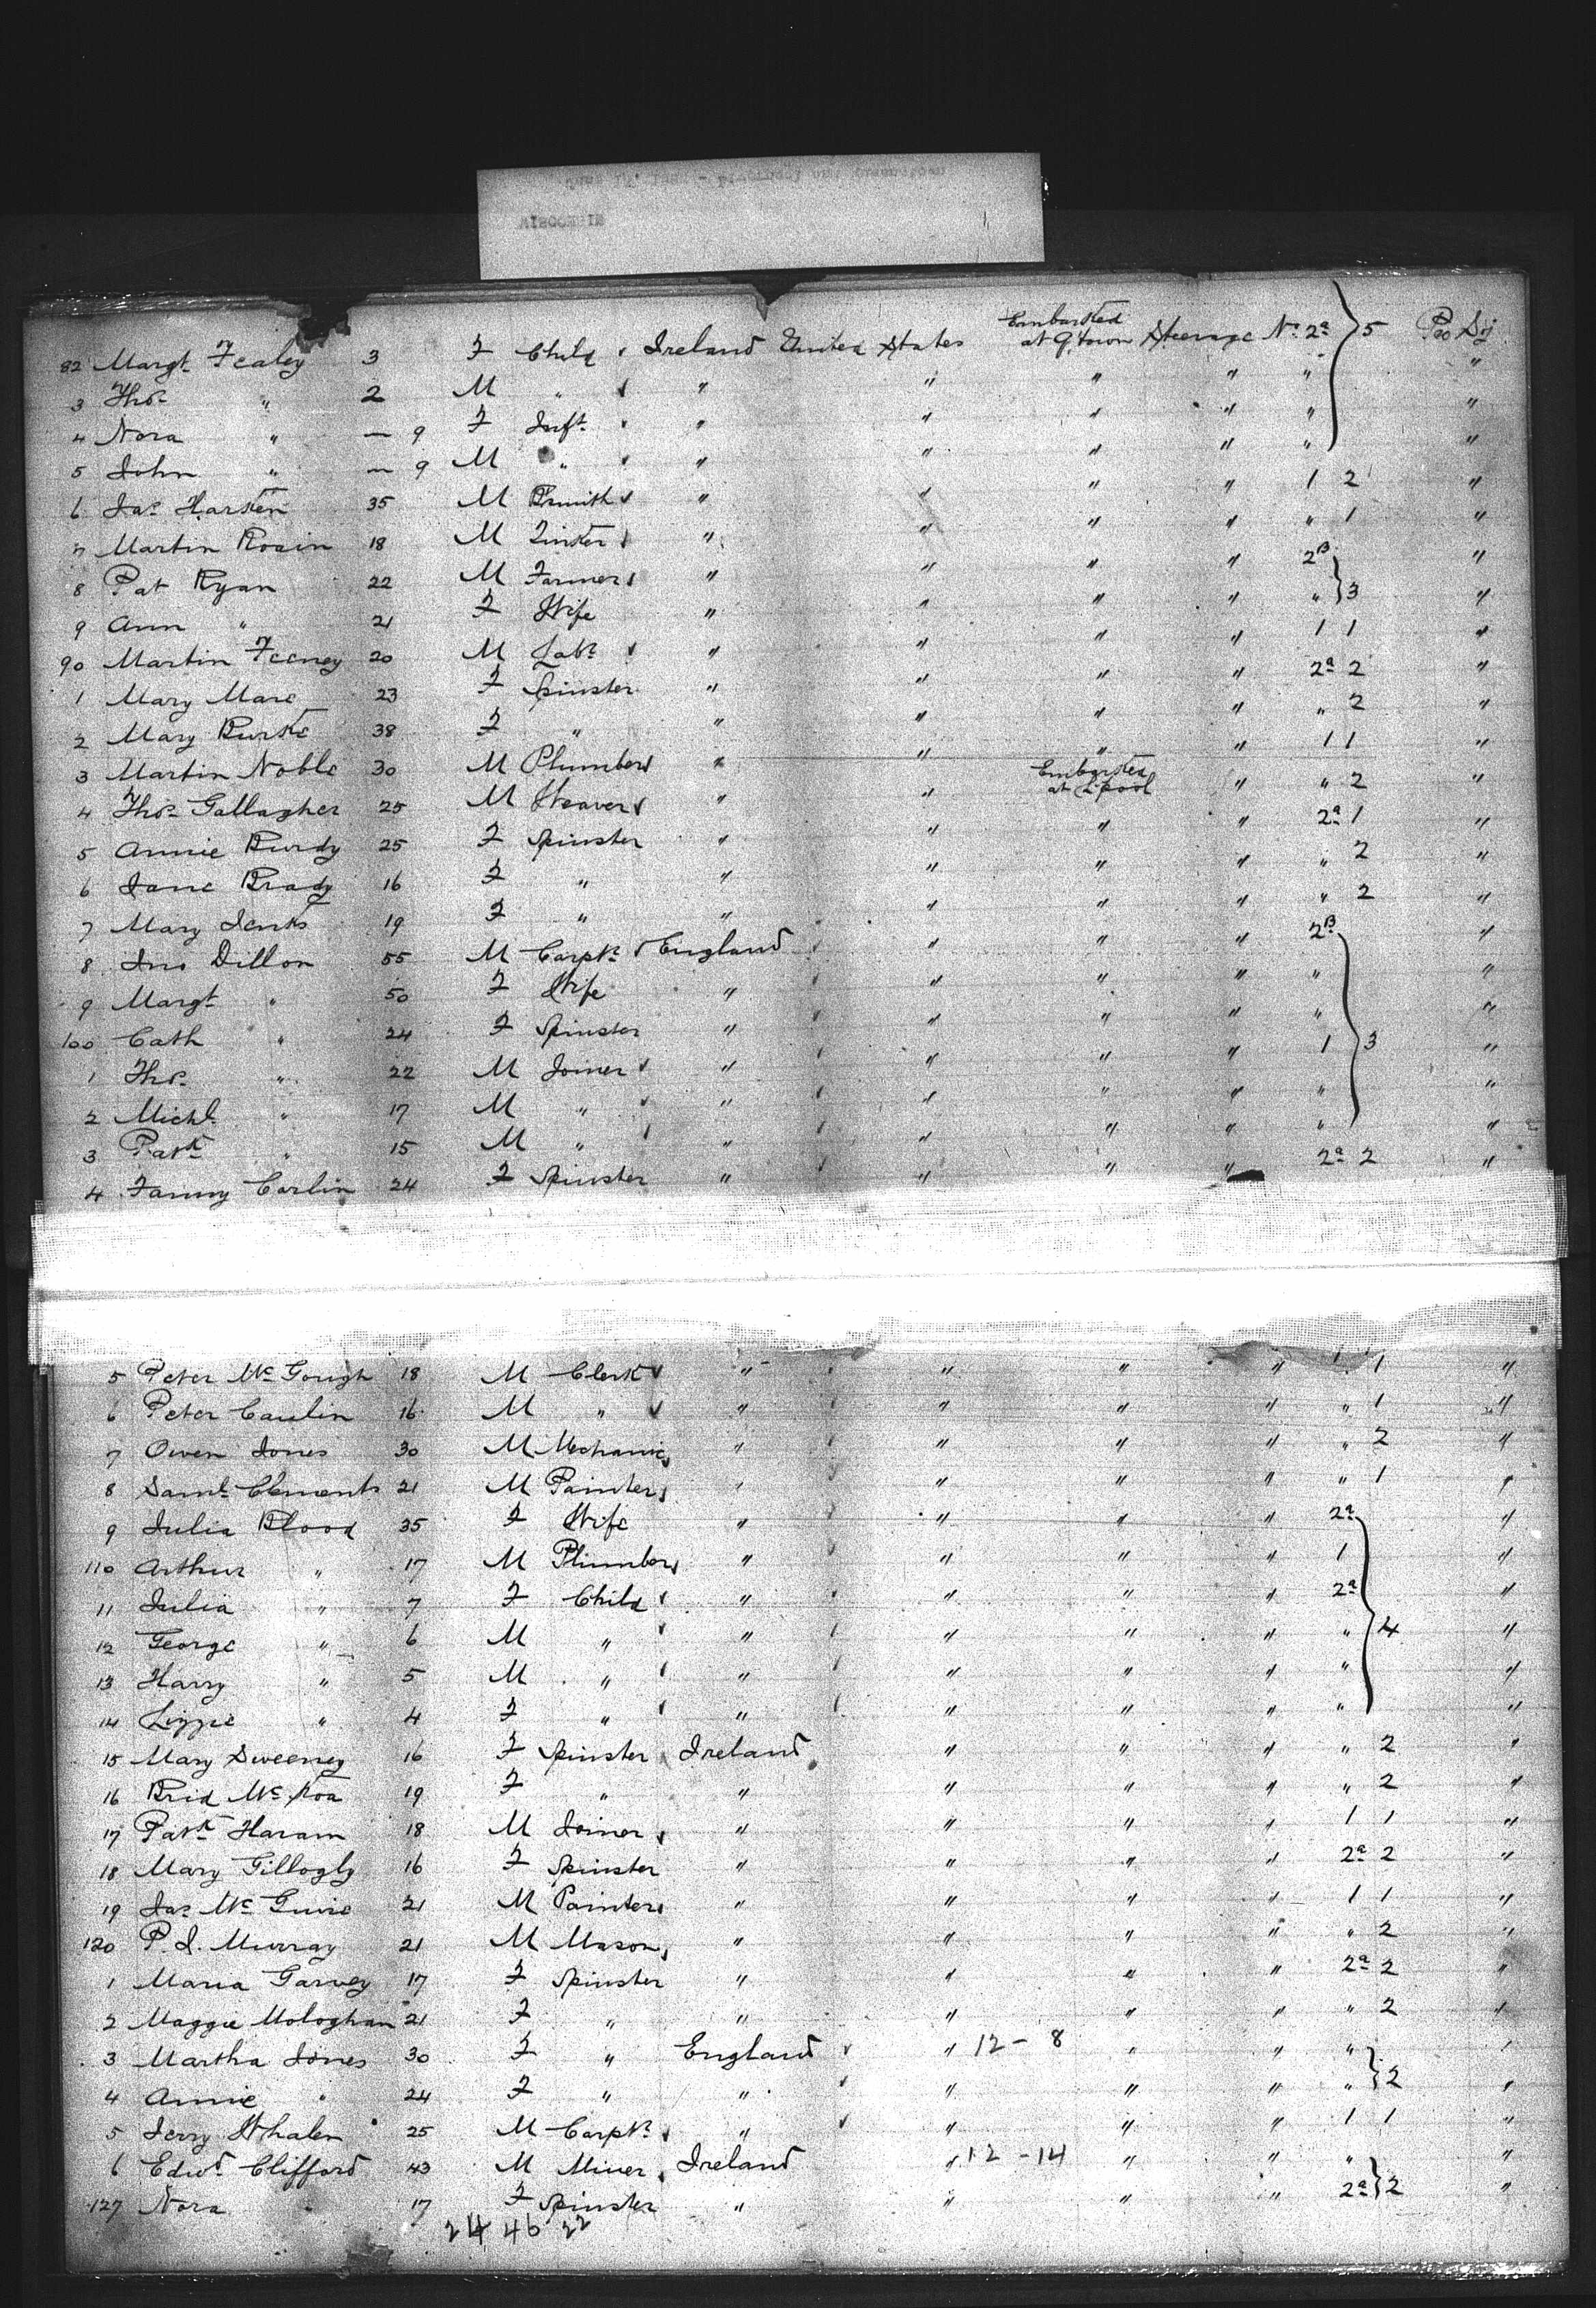 82 Margt. Fealey 3 F Child Ireland United States Embarked at Q'town Steerage No. 2a 5 Pro Soj
3 Thos. " 2 M " " " " " " "
4 Nora " — 9 F Inft. " " " " " "
5 John " — 9 M " " " " " " "
6 Jas. Harken 35 M Bsmith " " " " 1 2 "
7 Martin Rosin 18 M Tinker " " " " " 1 "
8 Pat Ryan 22 M Farmer " " " " 2B "
9 Ann " 21 F Wife " " " " " 3 "
90 Martin Feeney 20 M Labr. " " " " 1 1 "
1 Mary Mare 23 F Spinster " " " " 2a 2 "
2 Mary Burke 38 F " " " " " " 2 "
3 Martin Noble 30 M Plumber " " " " 1 1 "
4 Thos. Gallagher 25 M Weaver " " Embarked at L'pool " " 2 "
5 Annie Burdy 25 F Spinster " " " " 2a 1 "
6 Jane Brady 16 F " " " " " " 2 "
7 Mary Jenks 19 F " " " " " " 2 "
8 Jno Dillon 55 M Carpr. England " " " 2B "
9 Margt. " 50 F Wife " " " " " "
100 Cath " 24 F Spinster " " " " " "
1 Thos. " 22 M Joiner " " " " 1 3 "
2 Michl. " 17 M " " " " " " "
3 Patk. " 15 M " " " " " " "
4 Fanny Carlin 24 F Spinster " " " " 2a 2 "
5 Peter McGough 18 M Clerk " " " " 1 1 "
6 Peter Caulin 16 M " " " " " " 1 "
7 Owen Jones 30 M Mechanic " " " " " 2 "
8 Saml. Clements 21 M Painter " " " " " 1 "
9 Julia Blood 35 F Wife " " " " 2a "
110 Arthur " 17 M Plumber " " " " 1 "
11 Julia " 7 F Child " " " " 2a "
12 George " 6 M " " " " " " 4 "
13 Harry " 5 M " " " " " " "
14 Lizzie " 4 F " " " " " " "
15 Mary Sweeney 16 F Spinster Ireland " " " " 2 "
16 Brid McKoa 19 F " " " " " " 2 "
17 Patk. Haram 18 M Joiner " " " " 1 1 "
18 Mary Gillogly 16 F Spinster " " " " 2a 2 "
19 Jas. McGuire 21 M Painter " " " " 1 1 "
120 P. J. Murray 21 M Mason " " " " " 2 "
1 Maria Garvey 17 F Spinster " " " " 2a 2 "
2 Maggie Mologhan 21 F " " " " " " 2 "
3 Martha Jones 30 F " England " 12 - 8 " " " "
4 Annie " 24 F " " " " " " 2 "
5 Jerry Whalen 25 M Carpr. " " " " 1 1 "
6 Edwd. Clifford 43 M Miner Ireland " 12 - 14 " " " "
127 Nora " 17 F Spinster " " " " 2a 2 "
24 46 22